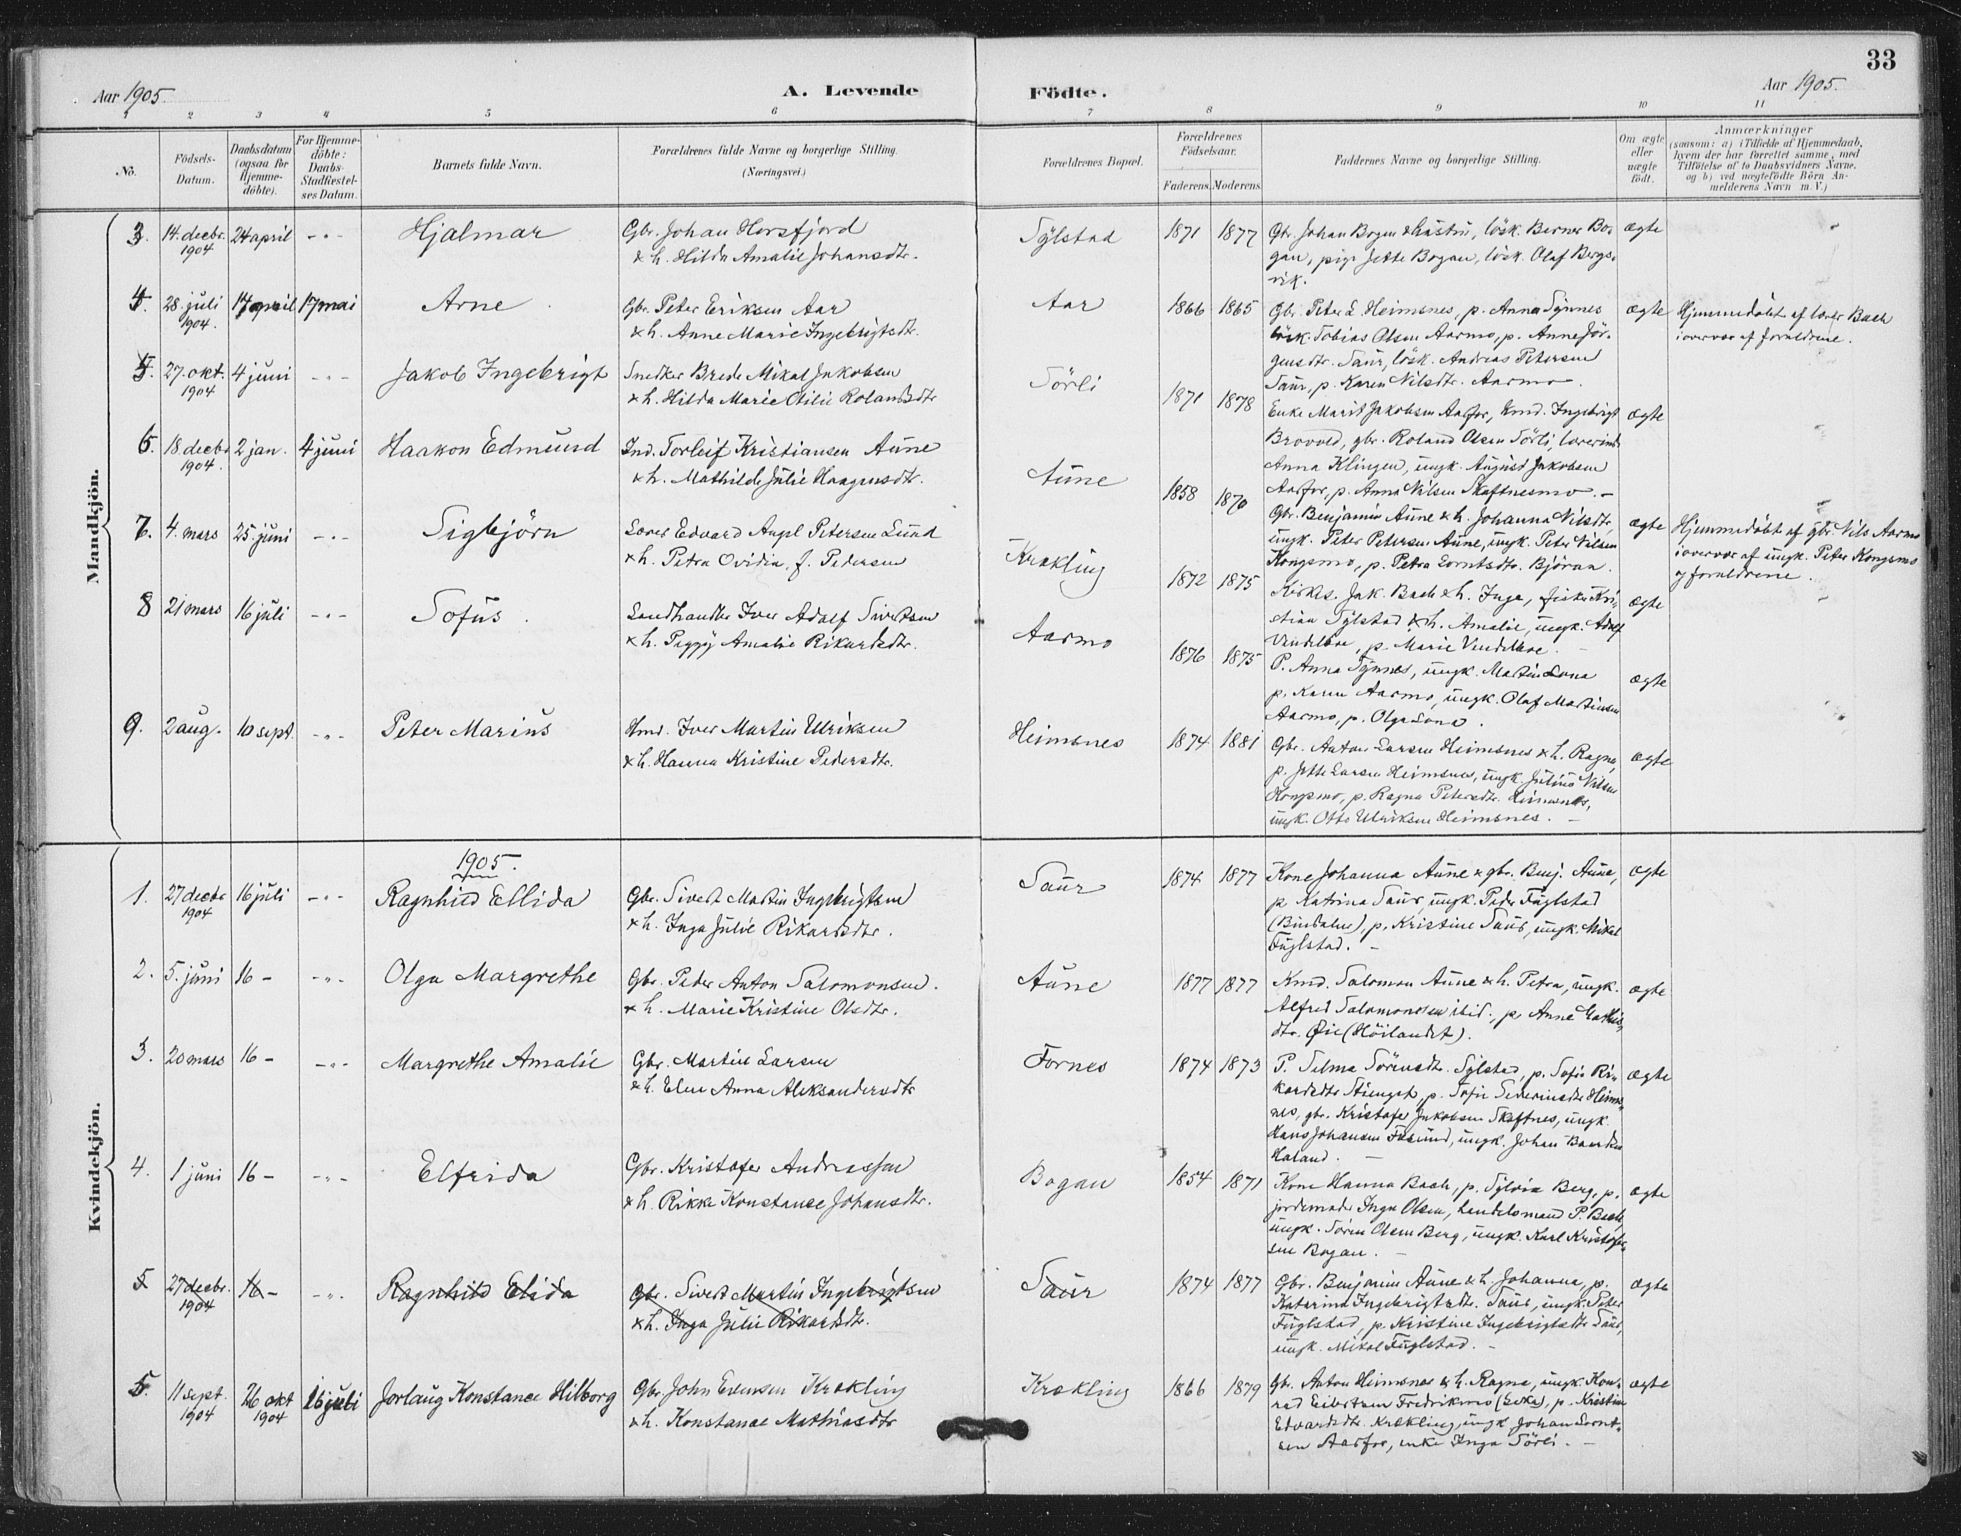 33
Aar 1905.
A. Levende Födte.
Aar 1905.
1 2 3 4 5 6 7 8 9 10 11
No.
Födsels-Datum.
Daabsdatum (ogsaa for Hjemme-döbte).
For Hjemme-döbte: Daabs-Stadfæstel-ses Datum.
Barnets fulde Navn.
Forældrenes fulde Navne og borgerlige Stilling. (Næringsvei.)
Forældrenes Bopæl.
Forældrenes Födselsaar.
Faderens. Moderens.
Faddernes Navne og borgerlige Stilling.
Om ægte eller uægte födt.
Anmærkninger
(saasom: a) i Tilfælde af Hjemmedaab,
hvem der har forrettet samme, med
Tilföielse af to Daabsvidners Navne.
og b) ved uægtefödte Börn An-
melderens Navn m. V.)
Mandkjön.
3. 14. decbr. 1904 24 april -"- Hjalmar
Gbr. Johan Horsfjord
& h. Hilda Amalie Johansdtr.
Sylstad 1871 1877
Gbr. Johan Bogen & hustru, lösk. Berner Bo-
gan, pige Jette Bogan, lösk. Olaf Bergs-
vik.
ægte
4. 28 juli 1904. 17 april 17 mai Arne
Gbr. Peter Eriksen Aar
& h. Anne Marie Ingebrigtsdtr.
Aar 1866 1865
Gbr. Peter L. Heimsnes, p. Anna Synnes
lösk. Tobias Olsen Aarmo, p. Anne Jör-
gensdtr. Saur, lösk. Andreas Petersen
Saur, p. Karen Nilsdtr. Aarmo.
ægte
Hjemmedöbt af lærer Bach
i overvær af forældrene.
5. 27. okt. 1904 4 juni -"- Jakob Ingebrigt
Snedker Brede Mikal Jakobsen
& h. Hilda Marie Otilie Rolandsdtr
Sörli 1871 1878
Enke Marit Jakobsen Aarfor, kmd. Ingebrigt
Brovold, gbr. Roland Olsen Sörli, lærerinde
Anna Klingen, ungk. August Jakobsen
Aarfor, p. Anna Nilsen Skaftnesmo. -
ægte
6. 18. decbr 1904. 2 jan. 4 juni Haakon Edmund
Ind. Torleif Kristiansen Aune
& h. Mathilde Julie Haagensdtr.
Aune 1858 1870
Gbr. Benjamin Aune & h. Johanna Nilsdtr,
ungk. Peter Petersen Aune, ungk. Peter Nilsen
Kongsmo, p. Petra Lorntsdtr. Björan.
ægte
Hjemmedöbt af gbr. Nils Aarmo
i overvær af ungk. Peter Kongsmo
og forældrene.
7. 4. mars 25. juni -"- Sigbjörn
Lærer Edvard Angel Petersen Lund
& h. Petra Ovidia, f. Pedersen
Krækling 1872 1875
Kirkes. Jak. Bach & h. Inga, fisker Kri-
stian Sylstad & h. Amalie, ungk. Adolf
p. Marie
ægte
8 21 mars 16 juli -"- Sofus.
Landhandler Iver Adolf Sivertsen
& h. Peggy Amalie Rikardsdtr.
Aarmo 1876 1875
P. Anna Synnes, ungk. Martin Lona
p. Karen Aarmo, ungk. Olaf Martinsen
Aarmo, p. Olga Lona.
ægte
9. 2 aug. 10 sept. -"- Peter Marius
Hmd. Iver Martin Ulriksen
& h. Hanna Kristine Pedersdtr.
Heimsnes 1874 1881
Gbr. Anton Larsen Heimsnes & h. Ragna,
p. Jette Larsen Heimsnes, ungk. Julius Nilsen
Kongsmo, p. Ragna Petersdtr. Heimsnes,
ungk. Otto Ulriksen Heimsnes. -
ægte
Kvindekjön.
1905.
1. 27 decbr 1904 16 juli -"- Ragnhild Ellida
Gbr. Sivert Martin Ingebrigtsen
& h. Inga Julie Rikardsdtr.
Saur 1874 1877
Kone Johanna Aune & gbr. Benj. Aune,
p. Katrina Saur, ungk. Peder Fuglstad
(Bindalen), p. Kristine Saur, ungk. Mikal
Fuglstad. -
ægte
2. 5. juni 16 - -"- Olga Margrethe
Gbr. Peder Anton Salomonsen.
& h. Marie Kristine Olsdtr.
Aune 1877 1877
Kmd. Salomon Aune & h. Petra, ungk.
Alfred Salomonsen ibid., p. Anne
dtr. Øie (Höilandet).
ægte
3. 20 mars 16 - -"- Margrethe Amalie
Gbr. Martin Larsen
& h. Elen Anna Aleksandersdtr
Fornes 1874 1873
P. Selma Sörensdtr. Sylstad, p. Sofie Ri-
kardsdtr p. Sofie Severinsdtr Heims-
nes, gbr. Kristofer Jakobsen Skaftnes, ungk.
Hans Johansen Fosund, ungk. Johan
Haland. -
ægte
4. 1 juni 16 - -"- Elfrida
Gbr. Kristofer Andreassen
& h. Rikke Konstanse Johansdtr.
Bogan 1854 1871
Kone Hanna Bach, p. Sylvia Berg, p.
jordemoder Inga Olsen, handelsmand P. Bach,
ungk. Sören Olsen Berg, ungk. Karl Kristofer-
sen Bogan. -
ægte
5 27 decbr. 1904 16 - -"- Ragnhild Elida
Gbr. Sivert Martin Ingebrigtsen
& h. Inga Julie Rikardsdtr.
Saur 1874 1877
Gbr. Benjamin Aune & h. Johanna, p.
Katarina Ingebrigtsdtr. Saur, ungk. Peter
Fuglstad, p. Kristine Ingebrigtsdtr Saur,
ungk. Mikal Fuglstad. -
ægte
5. 11 sept. 1904 26 okt 1904 16 juli Jorlaug Konstance Hilborg
Gbr. John Evensen Krækling
& h. Konstanse Mathiasdtr
Krækling 1866 1879
Gbr. Anton Heimsnes & h. Ragna, ungk. Kon-
rad Eibertsen Fredriksmo p. Kristine
Edvardsdtr. Krækling, ungk Johan Lornt-
sen Aarfor, enke Inga Sörli. -
ægte